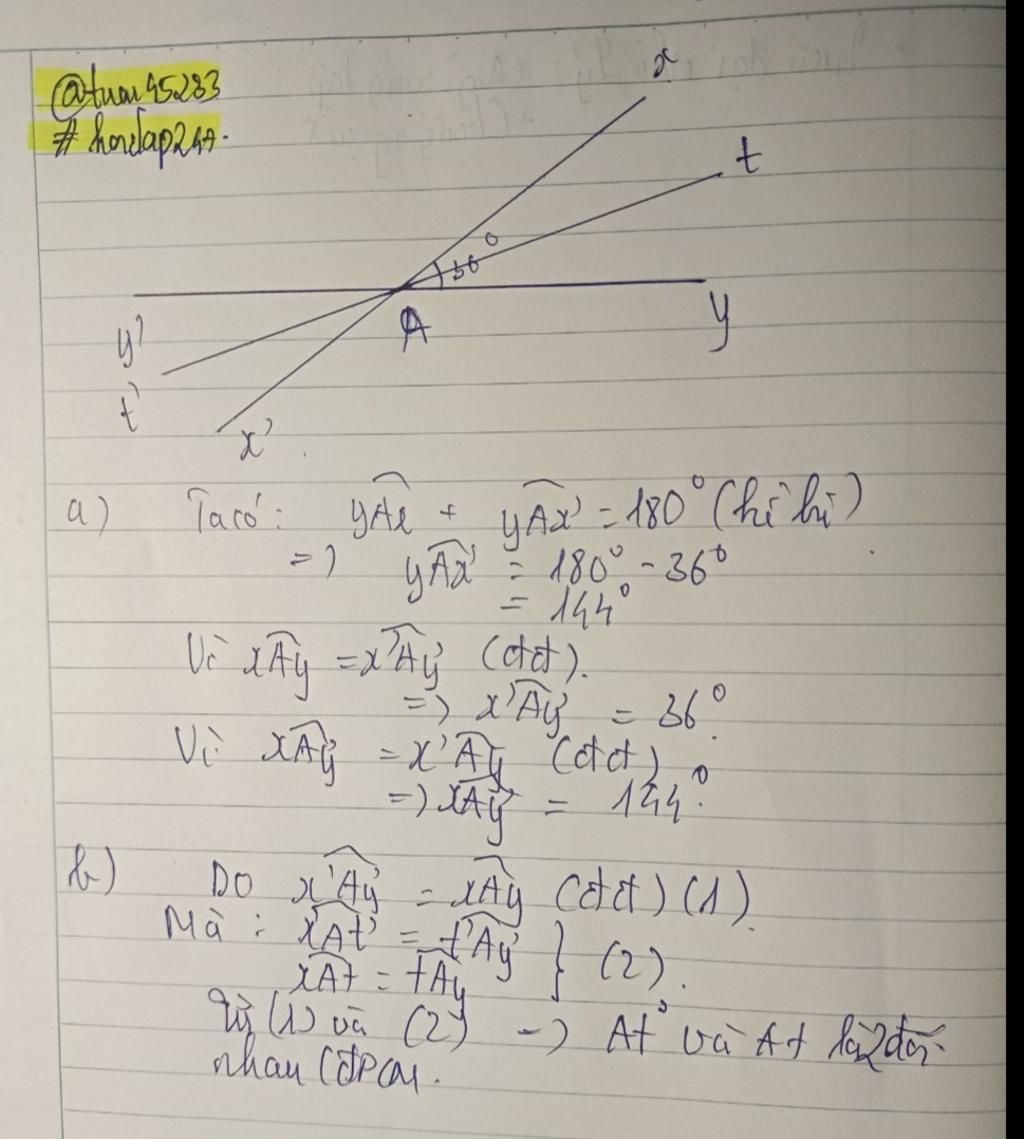 @tuan45283
# hoidap247.
x
t
36°
A
y
y'
t'
x'
a) Ta có: yAx + yAx' = 180° (hì hì)
=> yAx' = 180° - 36°
= 144°
Vì xAy = x'Ay' (đđ).
=> x'Ay' = 36°.
Vì xAy' = x'Ay (đđ)
=> xAy' = 144°.
b) Do x'Ay' = xAy (đđ) (1).
Mà: x'At' = t'Ay' } (2).
xAt = tAy
Từ (1) và (2) => At' và At là 2 đối
nhau (đPCM.